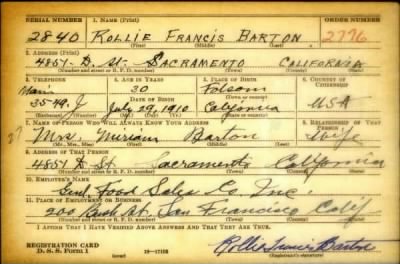 SERIAL NUMBER 1. NAME (Print) ORDER NUMBER
2840 ROLLIE FRANCIS BARTON 2776
(First) (Middle) (Last)
2. ADDRESS (Print)
4851- D. St- SACRAMENTO CALIFORNIA
(Number and street or R. F. D. number) (Town) (County) (State)
3. TELEPHONE 4. AGE IN YEARS 5. PLACE OF BIRTH 6. COUNTRY OF CITIZENSHIP
Main 30 Folsom
3549-J DATE OF BIRTH California USA
July 29, 1910
(Exchange) (Number) (Mo.) (Day) (Yr.) (State or country)
7. NAME OF PERSON WHO WILL ALWAYS KNOW YOUR ADDRESS 8. RELATIONSHIP OF THAT PERSON
Mrs. Miriam Barton Wife
(Mr., Mrs., Miss) (First) (Middle) (Last)
9. ADDRESS OF THAT PERSON
4851 D St. Sacramento California
(Number and street or R. F. D. number) (Town) (County) (State)
10. EMPLOYER'S NAME
Genl. Food Sales Co. Inc.
11. PLACE OF EMPLOYMENT OR BUSINESS
200 Bush St. San Francisco Calif
(Number and street or R. F. D. number) (Town) (County) (State)
I AFFIRM THAT I HAVE VERIFIED ABOVE ANSWERS AND THAT THEY ARE TRUE.
REGISTRATION CARD
D. S. S. Form 1 Rollie Francis Barton
(Registrant's signature)